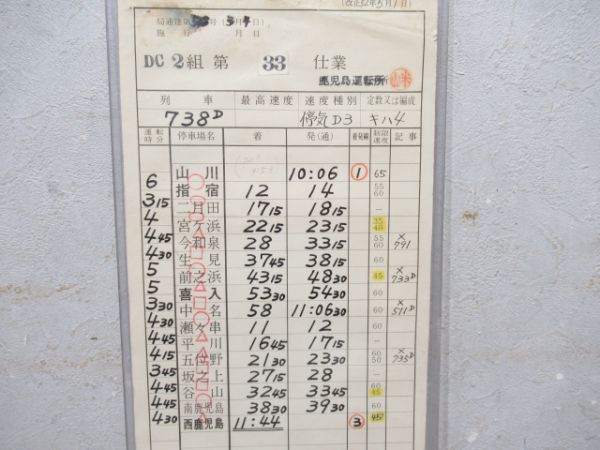 (改正32年5月1日)
局運達第 号( 月 日)
施行 月 日
DC 2組 第 33 仕業
鹿児島運転所
列車 最高速度 速度種別 定数又は編成
738D 停気D3 キハ4
運転時分 停車場名 着 発(通) 着発線 制限速度 記事
山川 10:06 1 65
6 指宿 12 14 55 60
3 15 二月田 17 15 18 15 –
4 宮ケ浜 22 15 23 15 35 40
4 45 今和泉 28 33 15 55 60 × 791
4 30 生見 37 45 38 15 60
5 前之浜 43 15 48 30 45 × 733D
5 喜入 53 30 54 30 60
3 30 中名 58 11:06 30 60 × 571D
4 30 瀬々串 11 12 60
4 45 平川 16 45 17 15 –
4 15 五位野 21 30 23 30 60 50 × 735D
3 45 坂之上 27 15 28 –
4 45 谷山 32 45 33 45 60 45
4 45 南鹿児島 38 30 39 30 60
4 30 西鹿児島 11:44 3 45